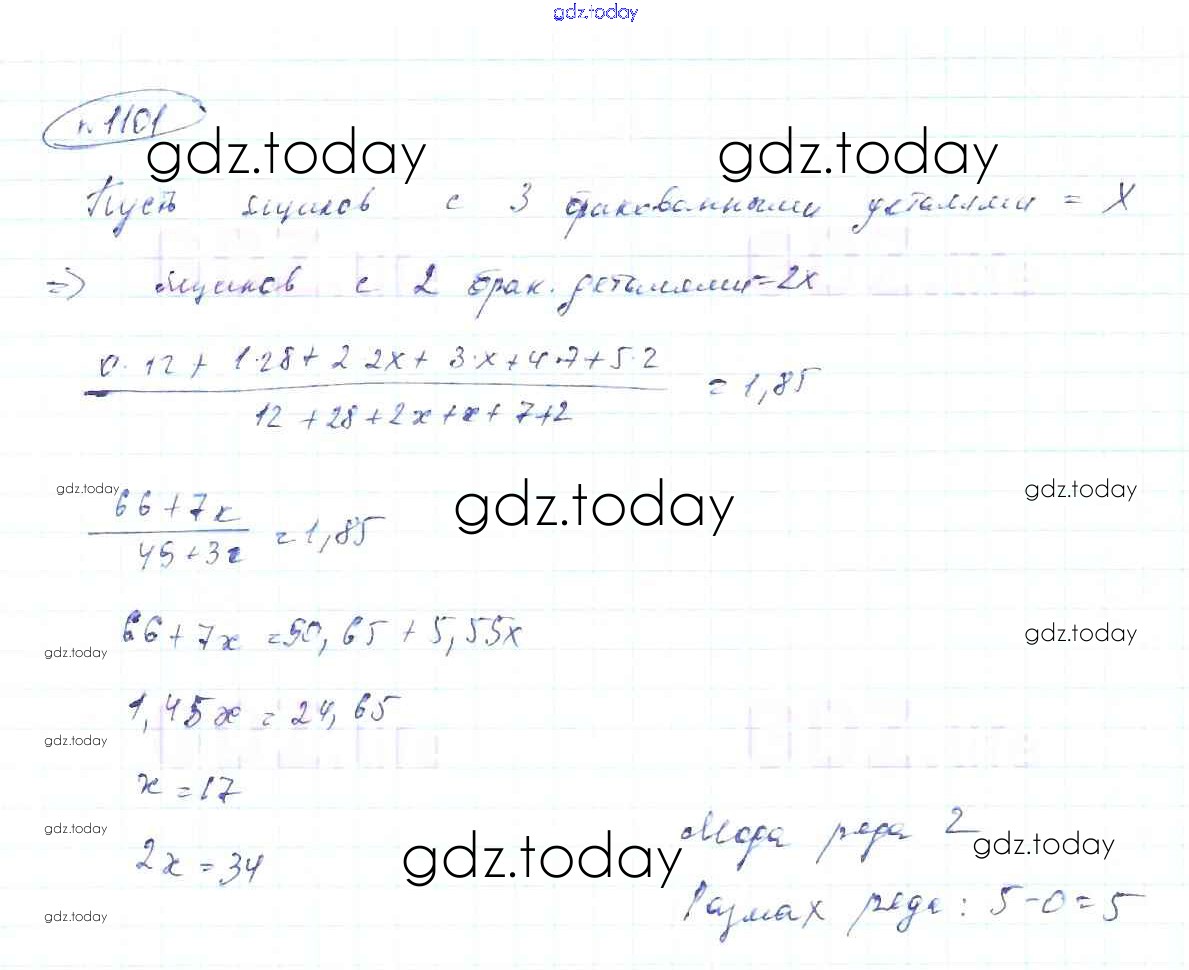 gdz.today
n. 1101
gdz.today gdz.today
Пусть ящиков с 3 бракованными деталями = X
=> ящиков с 2 брак. деталями = 2x
0·12 + 1·28 + 2 2x + 3·x + 4·7 + 5·2
= 1,85
12 + 28 + 2x + x + 7 + 2
gdz.today gdz.today gdz.today
66 + 7x
= 1,85
49 + 3x
66 + 7x = 90,65 + 5,55x
gdz.today gdz.today
1,45x = 24,65
gdz.today
x = 17
gdz.today
Мода ряда 2
2x = 34
gdz.today gdz.today
Размах ряда: 5 - 0 = 5
gdz.today